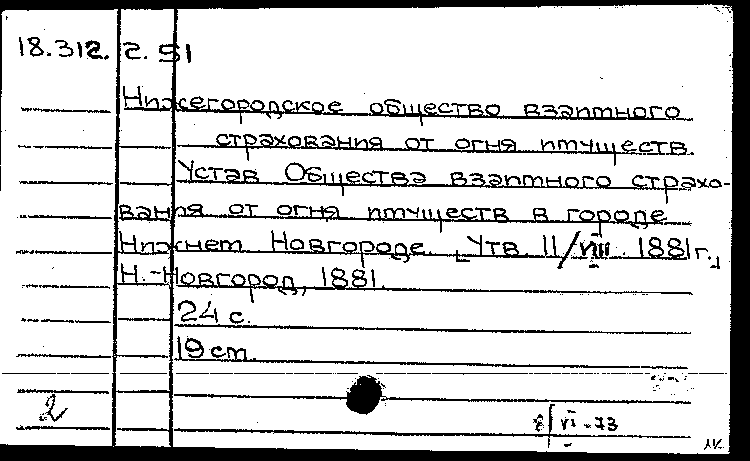 18.312.2.51
Нижегородское общество взаимного
страхования от огня имуществ.
Устав Общества взаимного страхо-
вания от огня имуществ в городе
Нижнем Новгороде. [Утв. 11/VIII. 1881 г.]
Н.-Новгород, 1881.
24 с.
19 см.
2
8/VI-73